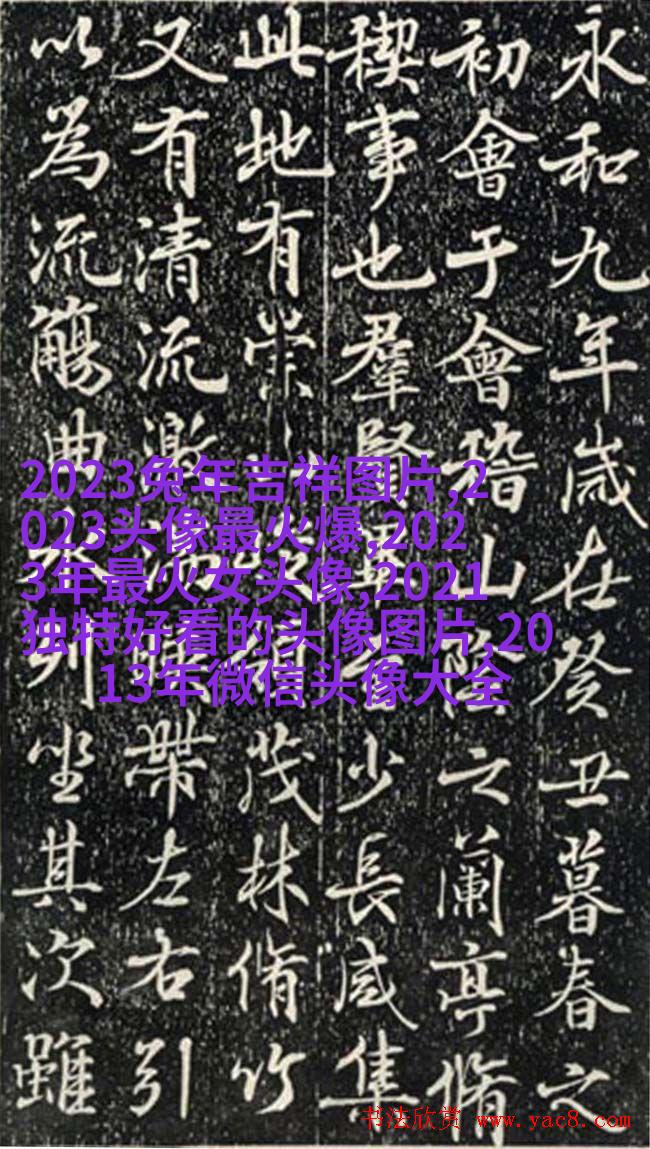 永和九年歲在癸丑暮春之
初會于會稽山陰之蘭亭脩
禊事也羣賢畢少長咸集
此地有崇茂林脩竹
又有清流激帶左右引
以為流觴曲列坐其次雖
2023兔年吉祥图片,2
023头像最火爆,202
3年最火女头像,2021
独特好看的头像图片,20
13年微信头像大全
书法欣赏 www.yac8.com